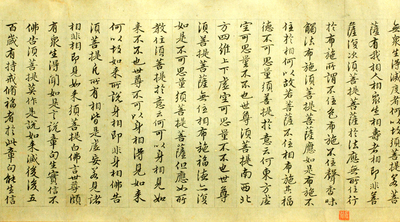 無眾生得滅度者何以故須菩提若菩
薩有我相人相眾生相壽者相即非菩
薩復次須菩提菩薩於法應無所住行
於布施所謂不住色布施不住聲香味
觸法布施須菩提菩薩應如是布施不
住於相何以故若菩薩不住相布施其福
德不可思量須菩提於意云何東方虛
空可思量不不也世尊須菩提南西北
方四維上下虛空可思量不不也世尊
須菩提菩薩無住相布施福德亦復
如是不可思量須菩提菩薩但應如所
教住須菩提於意云何可以身相見如
來不不也世尊不可以身相得見如來
何以故如來所說身相即非身相佛告
須菩提凡所有相皆是虛妄若見諸
相非相即見如來須菩提白佛言世尊頗
有眾生得聞如是言說章句生實信不
佛告須菩提莫作是說如來滅後後五
百歲有持戒修福者於此章句能生信